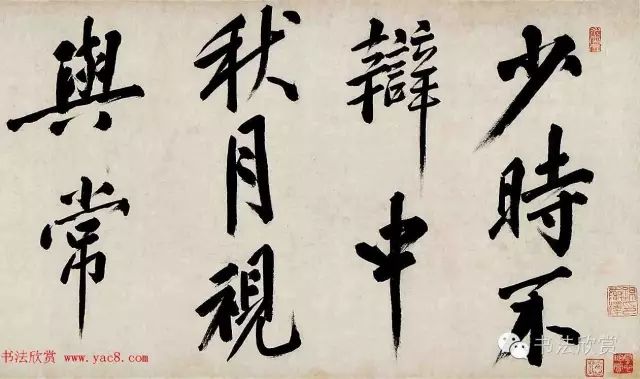 少時不
辯中
秋月視
與常
书法欣赏 www.yac8.com
书法欣赏